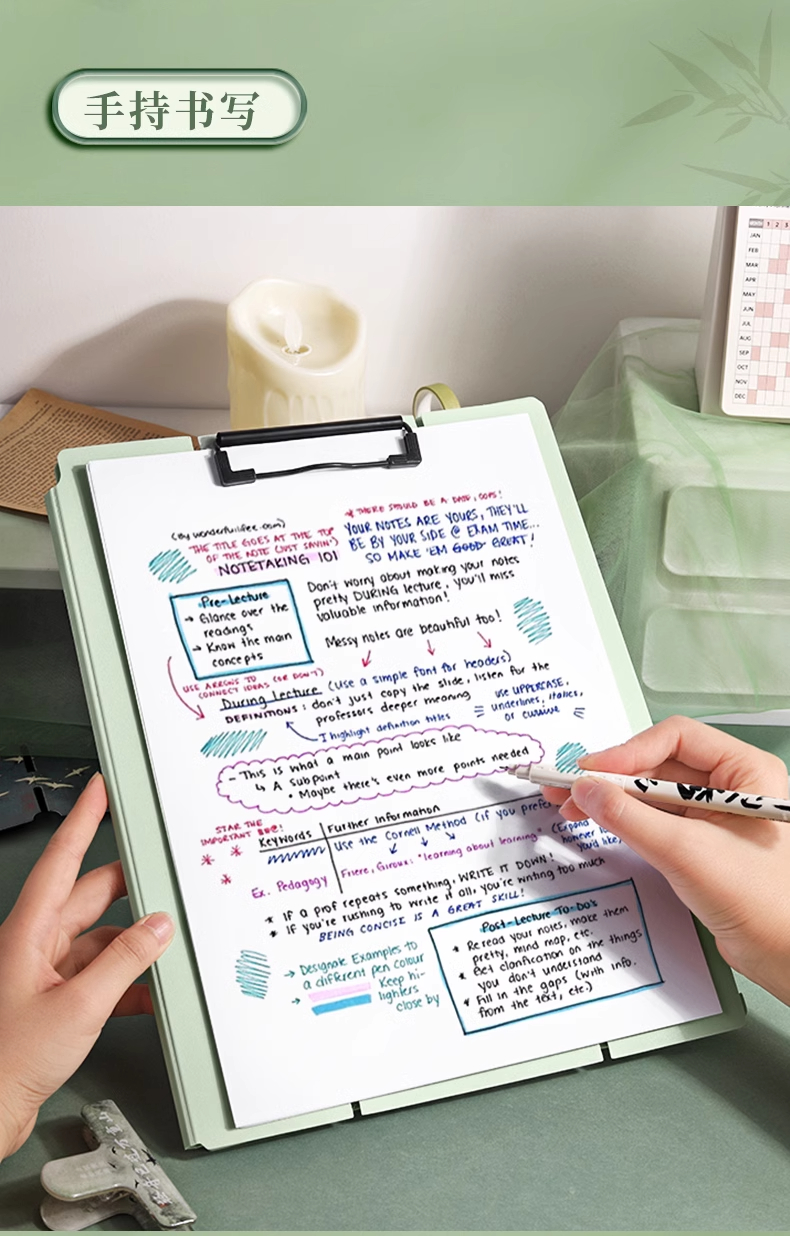 手持书写
JAN
FEB
MAR
APR
MAY
JUN
JUL
AUG
SEP
OCT
NOV
DEC
* THERE SHOULD BE A DATE, OOPS!
(By wonderfullifee.com)
THE TITLE GOES AT THE TOP
OF THE NOTE (JUST SAYIN')
NOTETAKING 101
YOUR NOTES ARE YOURS, THEY'LL
BE BY YOUR SIDE @ EXAM TIME...
SO MAKE 'EM GOOD GREAT!
Pre-Lecture
→ Glance over the
readings
→ Know the main
concepts
Don't worry about making your notes
pretty DURING lecture, you'll miss
valuable information!
Messy notes are beautiful too!
USE ARROWS TO
CONNECT IDEAS (OR DON'T)
During Lecture (Use a simple font for headers)
DEFINITIONS: don't just copy the slide, listen for the
professors deeper meaning
I highlight definition titles
use UPPERCASE,
underlines, italics,
or cursive
- This is what a main point looks like
↳ A subpoint
• Maybe there's even more points needed
STAR THE
IMPORTANT
Keywords
Further Information
Use the Cornell Method (if you prefe
Ex. Pedagogy
Friere, Giroux: "learning about learning"
(Expand
however
you'd like)
* If a prof repeats something, WRITE IT DOWN!
* If you're rushing to write it all, you're writing too much
BEING CONCISE IS A GREAT SKILL!
→ Designate Examples to
a different pen colour
→ Keep hi-
lighters
close by
Post-Lecture To-Do's
* Reread your notes, make them
pretty, mind map, etc.
* Get clarification on the things
you don't understand
* Fill in the gaps (with info.
from the text, etc)